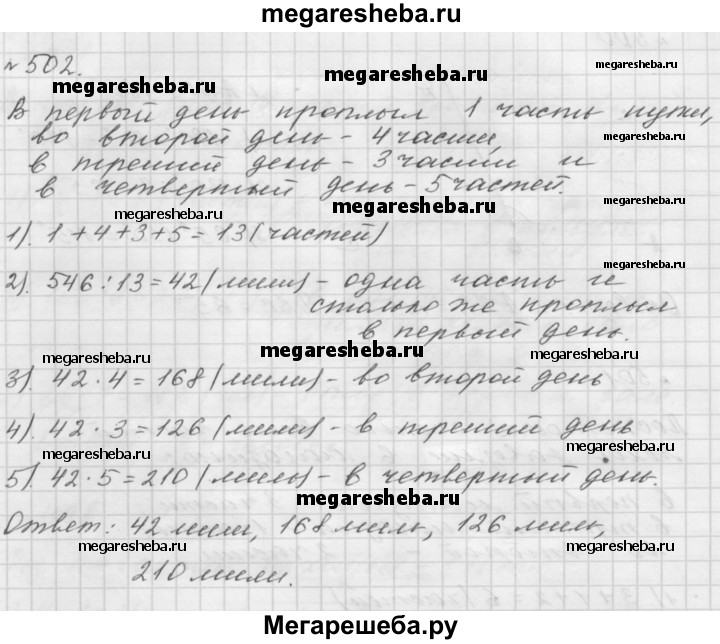 megaresheba.ru
№ 502.
megaresheba.ru megaresheba.ru megaresheba.ru
В первый день проплыл 1 часть пути,
во второй день - 4 части,
megaresheba.ru
в третий день - 3 части и
в четвертый день - 5 частей.
megaresheba.ru megaresheba.ru megaresheba.ru
1). 1 + 4 + 3 + 5 = 13 (частей)
2). 546 : 13 = 42 (мили) - одна часть и
столько же проплыл
в первый день.
megaresheba.ru megaresheba.ru megaresheba.ru
3). 42 · 4 = 168 (мили) - во второй день
4). 42 · 3 = 126 (мили) - в третий день
5). 42 · 5 = 210 (миль) - в четвертый день.
megaresheba.ru
Ответ: 42 мили, 168 миль, 126 миль,
megaresheba.ru megaresheba.ru
210 мили.
megaresheba.ru megaresheba.ru
Мегарешеба.ру